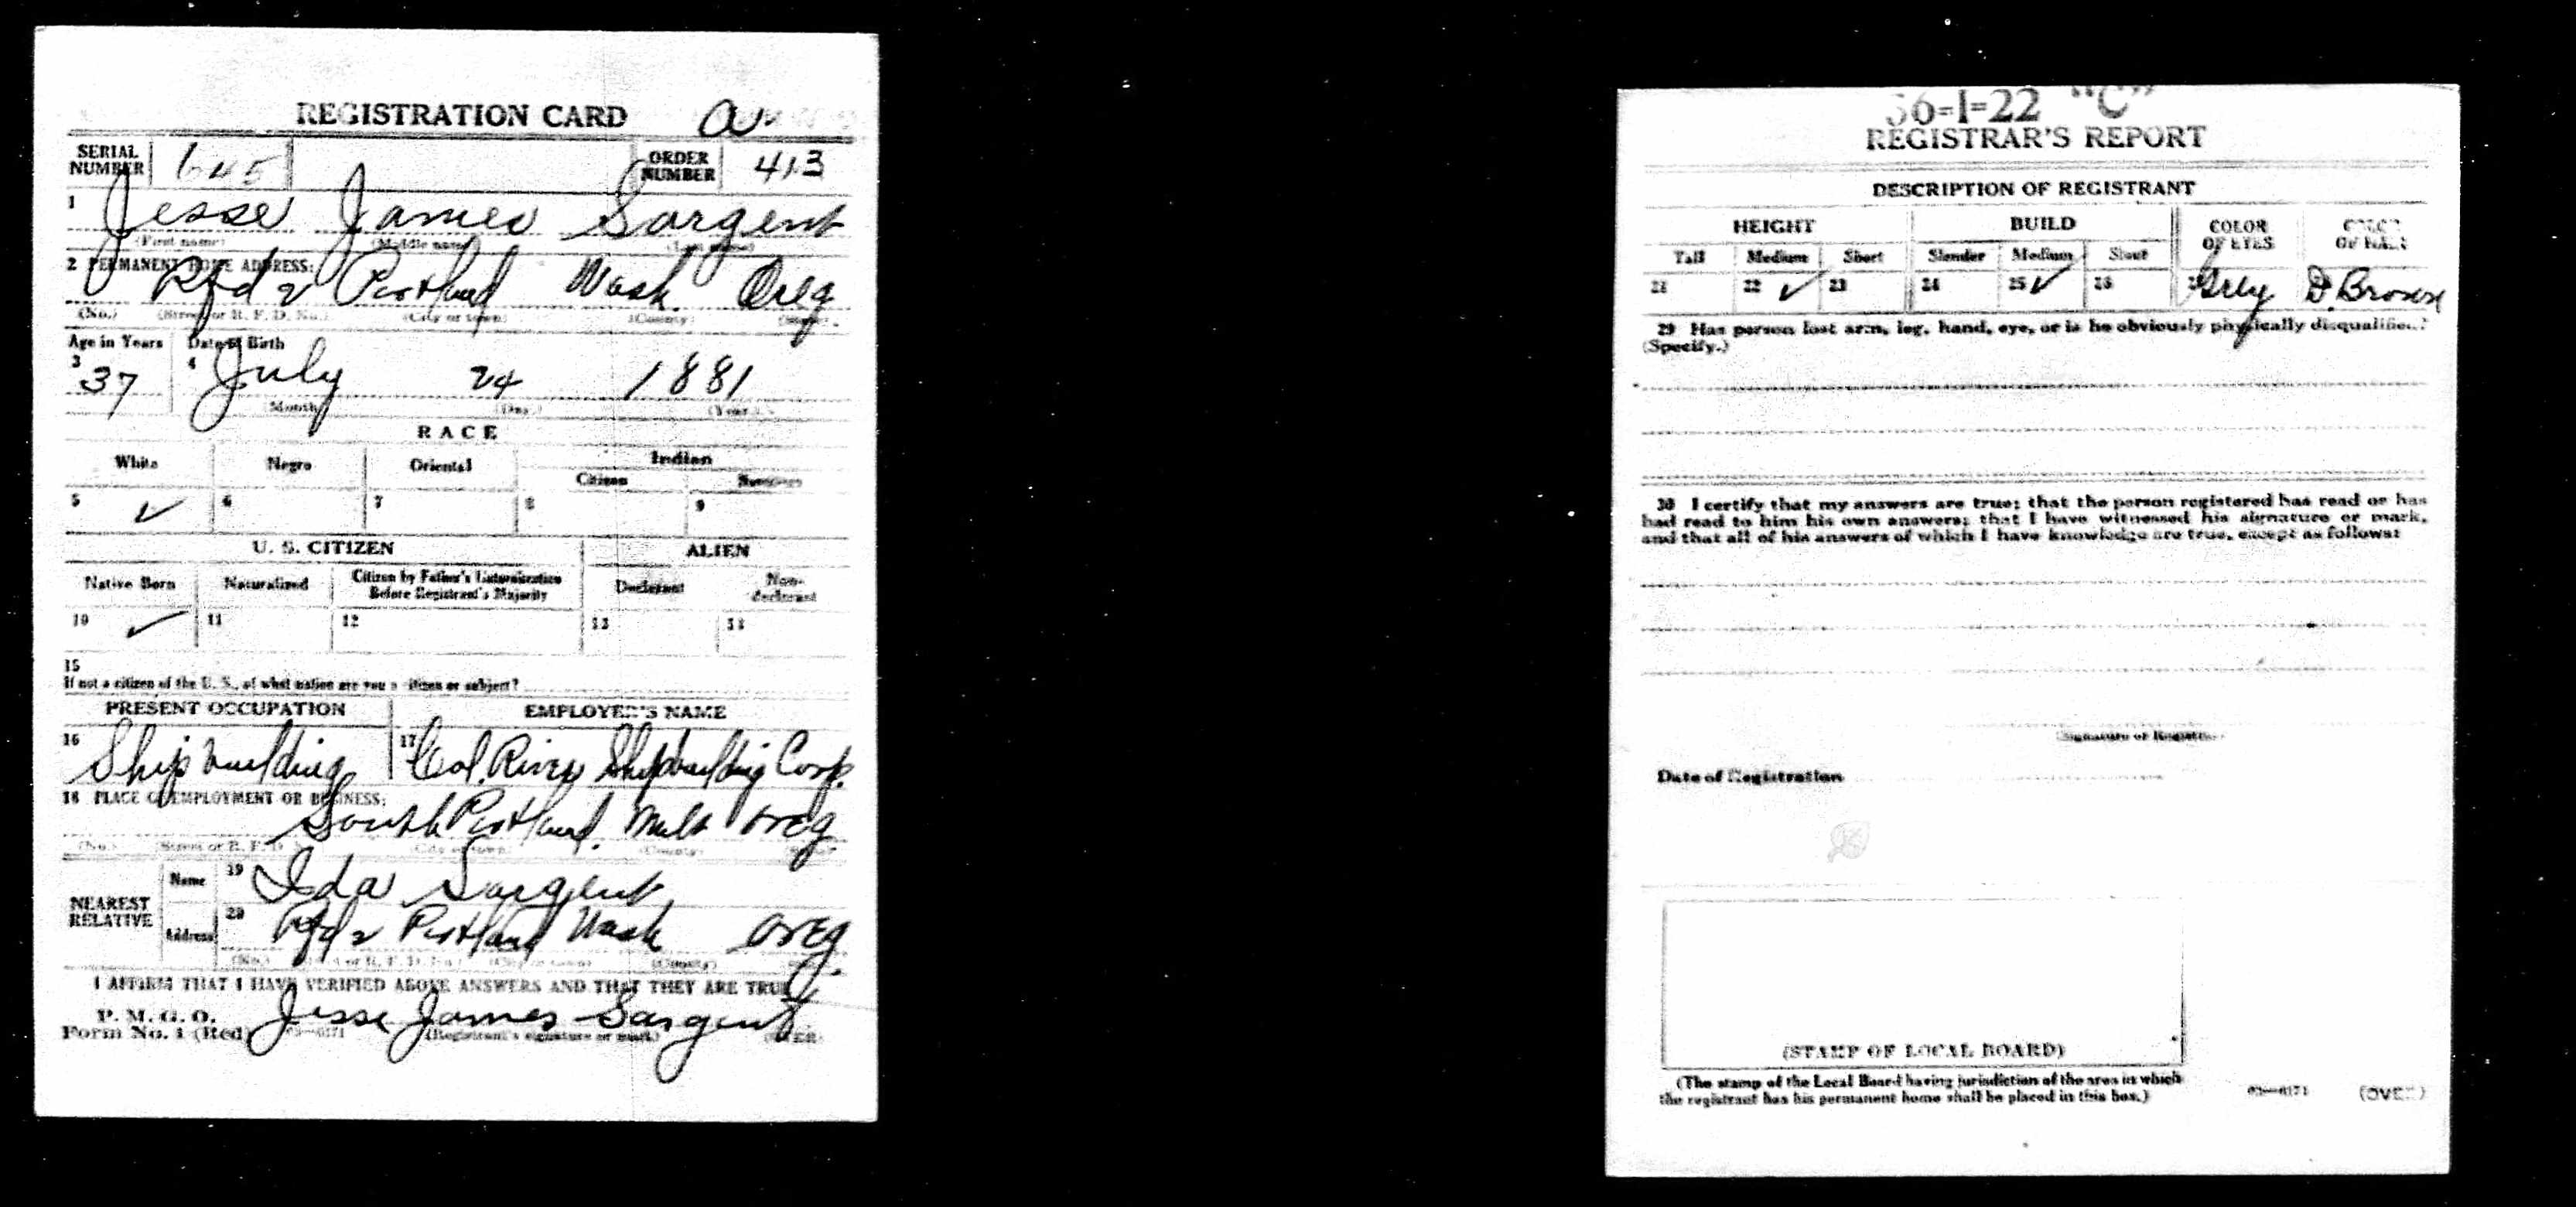 REGISTRATION CARD a
SERIAL NUMBER 645 ORDER NUMBER 413
1 Jesse James Sargent
(First name) (Middle name) (Last name)
2 PERMANENT HOME ADDRESS:
Rfd 2 Portland Wash. Oreg
(No.) (Street or R. F. D. No.) (City or town) (County) (State)
Age in Years Date of Birth
3 37 4 July 24 1881
(Month) (Day.) (Year.)
RACE
White Negro Oriental Indian
Citizen Noncitizen
5 ✓ 6 7 8 9
U. S. CITIZEN ALIEN
Native Born Naturalized Citizen by Father's Naturalization Before Registrant's Majority Declarant Non-declarant
10 ✓ 11 12 13 14
15
If not a citizen of the U. S., of what nation are you a citizen or subject?
PRESENT OCCUPATION EMPLOYER'S NAME
16 Ship building 17 Col. River Shipbuilding Corp.
18 PLACE OF EMPLOYMENT OR BUSINESS:
South Portland. Mult Oreg
(No.) (Street or R. F. D. (City or town) (County) (State)
NEAREST RELATIVE Name 19 Ida Sargent
Address 20 Rfd 2 Portland Wash Oreg.
(No.) (Street or R. F. D. No.) (City or town) (County) (State)
I AFFIRM THAT I HAVE VERIFIED ABOVE ANSWERS AND THAT THEY ARE TRUE
P. M. G. O.
Form No. 1 (Red) 03—6171 Jesse James Sargent
(Registrant's signature or mark) (OVER)
36=1=22 "C"
REGISTRAR'S REPORT
DESCRIPTION OF REGISTRANT
HEIGHT BUILD COLOR OF EYES COLOR OF HAIR
Tall Medium Short Slender Medium Stout
21 22 ✓ 23 24 25 ✓ 26 27 Grey D Brown
29 Has person lost arm, leg, hand, eye, or is he obviously physically disqualified?
(Specify.)
30 I certify that my answers are true; that the person registered has read or has
had read to him his own answers; that I have witnessed his signature or mark,
and that all of his answers of which I have knowledge are true, except as follows:
(Signature of Registrar)
Date of Registration
(STAMP OF LOCAL BOARD)
(The stamp of the Local Board having jurisdiction of the area in which
the registrant has his permanent home shall be placed in this box.)
03—6171 (OVER)